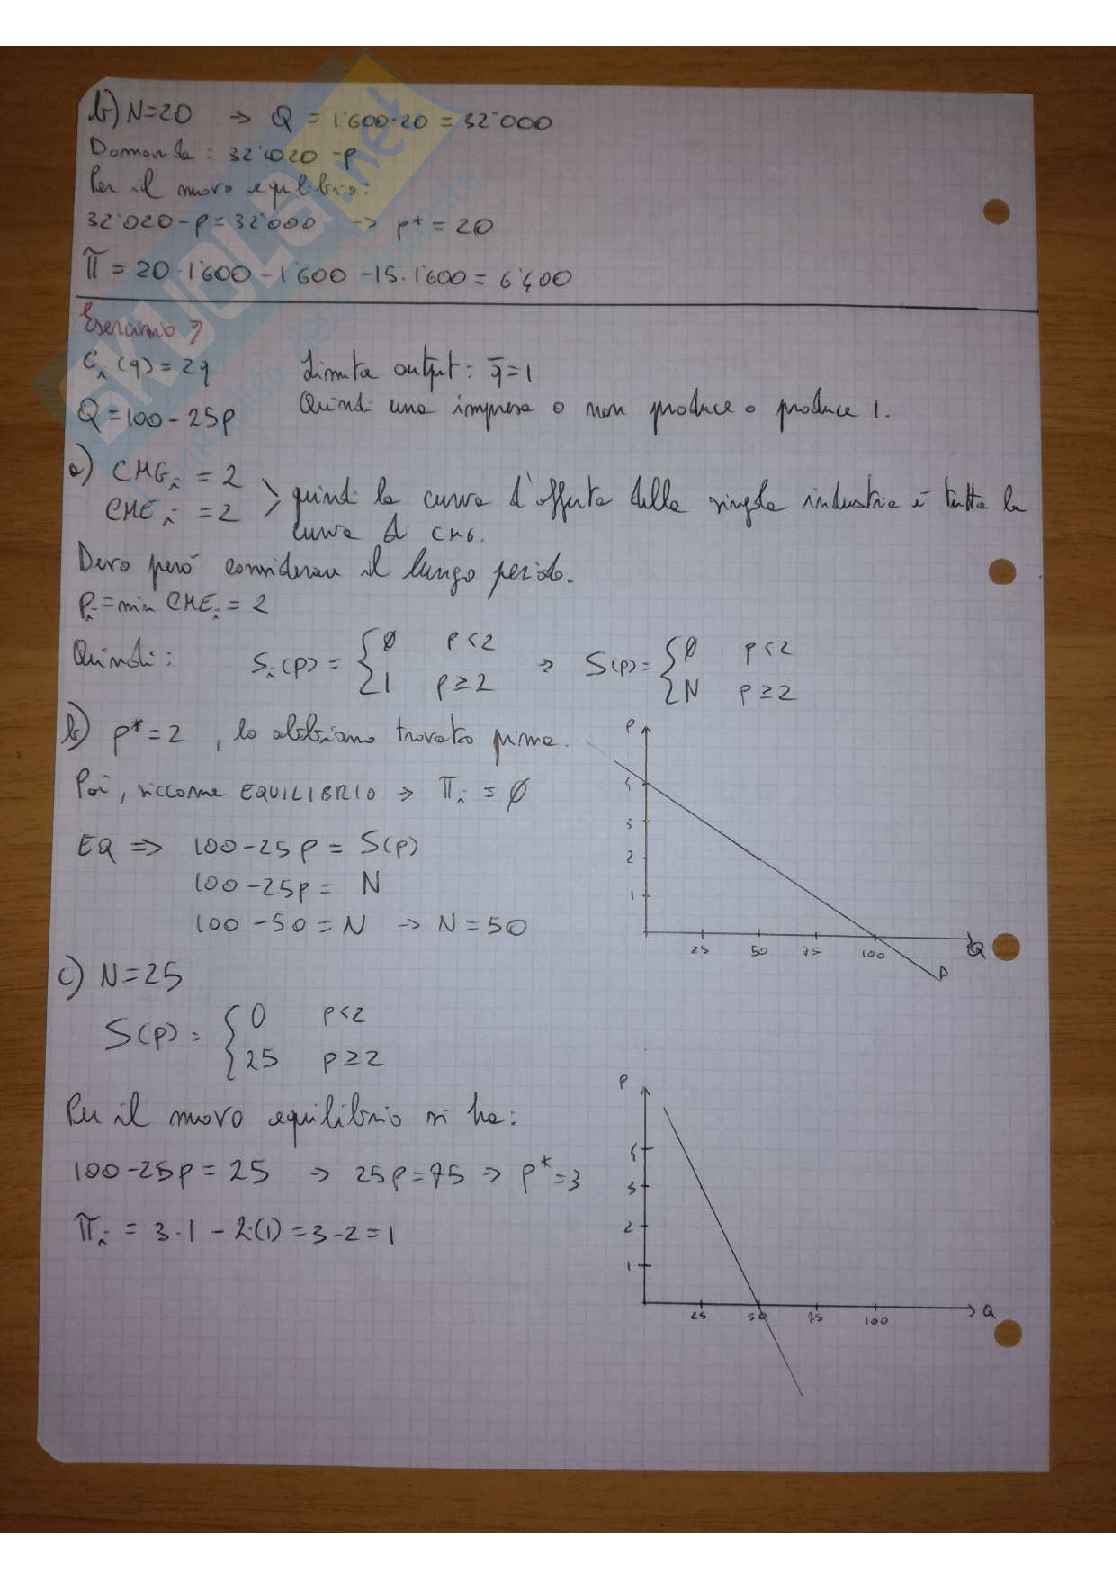 b) N=20 → Q = 1'600·20 = 32'000
Domanda: 32'020 -p
Per il nuovo equilibrio:
32'020-p = 32'000 → p* = 20
π = 20·1'600 - 1'600 - 15·1'600 = 6'400
Esercizio 7
Ci(q) = 2q Limita output: q̅=1
Q = 100 - 25p Quindi una impresa o non produce o produce 1.
a) CMGi = 2
CMEi = 2 > quindi la curva d'offerta della singola industria è tutta la
curva di CMG.
Devo però considerare il lungo periodo.
Pi = min CMEi = 2
Quindi: Si(p) = { 0 p<2 → S(p) = { 0 p<2
1 p≥2 N p≥2
b) p* = 2, lo abbiamo trovato prima.
Poi, siccome EQUILIBRIO → πi = 0
EQ ⇒ 100-25p = S(p)
100-25p = N
100-50 = N → N=50
P
4
3
2
1
25 50 75 100 Q
D
c) N=25
S(p) = { 0 p<2
25 p≥2
Per il nuovo equilibrio si ha:
100-25p = 25 → 25p=75 → p*=3
πi = 3·1 - 2·(1) = 3-2 = 1
P
4
3
2
1
25 50 75 100 Q
SKUOLA.net